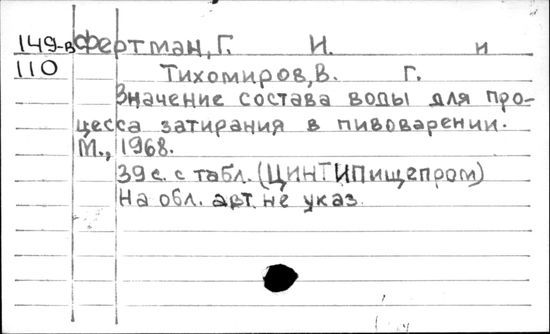 149-в Фертман, Г. И. и
110 Тихомиров, В. Г.
Значение состава воды для про-
цесса затирания в пивоварении.
М., 1968.
39 с. с табл. (ЦИНТИПищепром)
На обл. авт. не указ.